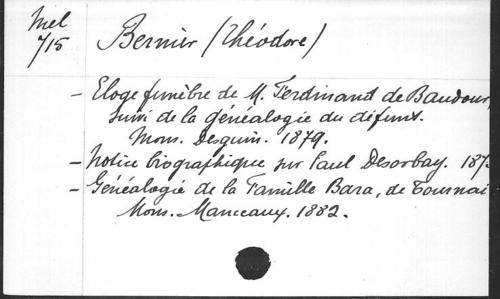 Miel
715
Bernier (Théodore)
- Eloge funèbre de M. Ferdinand de Baudour,
suivi de la généalogie du défunt.
Mons. Desguin. 1879.
- Notice biographique sur Paul Desorbay. 187
- Généalogie de la Famille Bara, de Tournai
Mons. Manceaux. 1882.